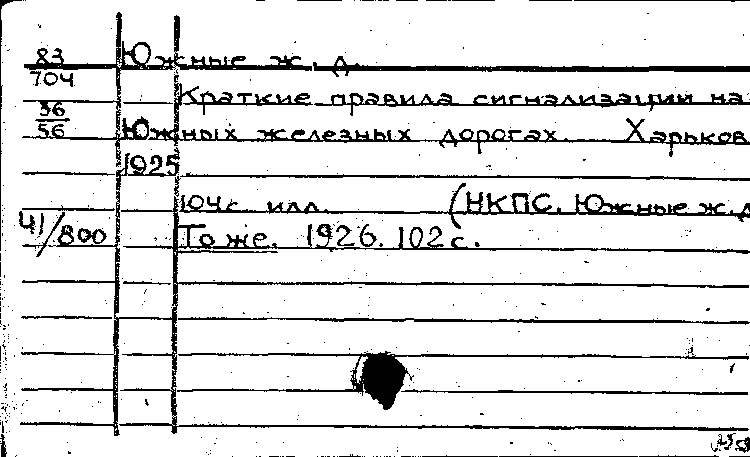 83 Южные ж. д.
704
Краткие правила сигнализации на
36
56 Южных железных дорогах. Харьков
1925.
104с. илл. (НКПС. Южные ж.д
41/800 То же. 1926. 102 с.